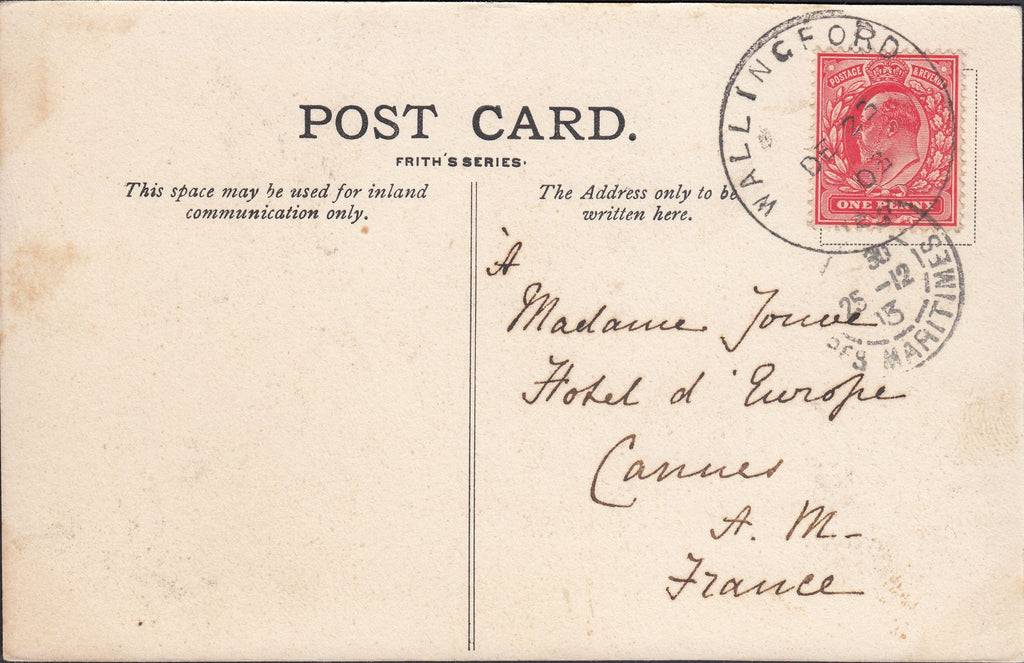 WALLINGFORD
DE 23
03
POSTAGE & REVENUE
ONE PENNY
POST CARD.
FRITH'S SERIES.
This space may be used for inland
communication only.
The Address only to be
written here.
25 -12
MARITIMES
À
Madame Jouve
Hotel d'Europe
Cannes
A. M-
France